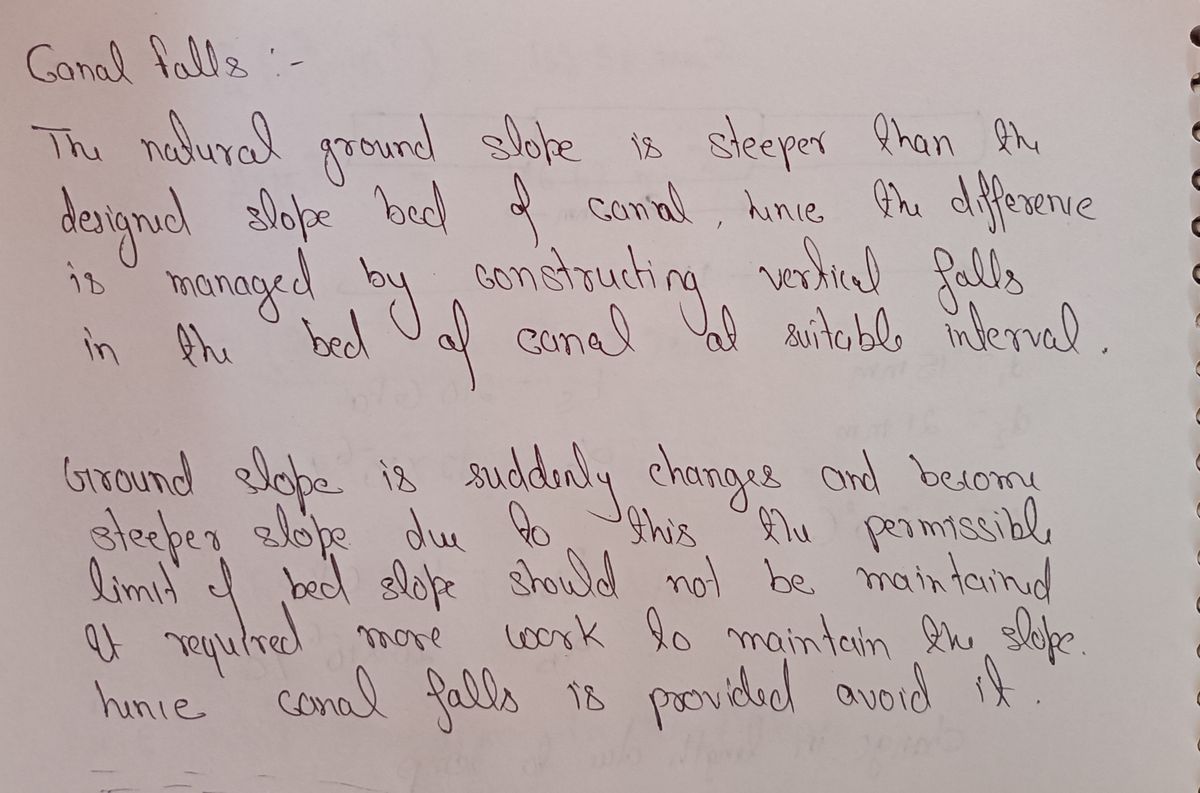 Canal falls :-
The natural ground slope is steeper than the
designed slope bed of canal, hence the difference
is managed by constructing vertical falls
in the bed of canal at suitable interval.
Ground slope is suddenly changes and become
steeper slope due to this the permissible
limit of bed slope should not be maintained
It required more work to maintain the slope.
hence canal falls is provided avoid it.